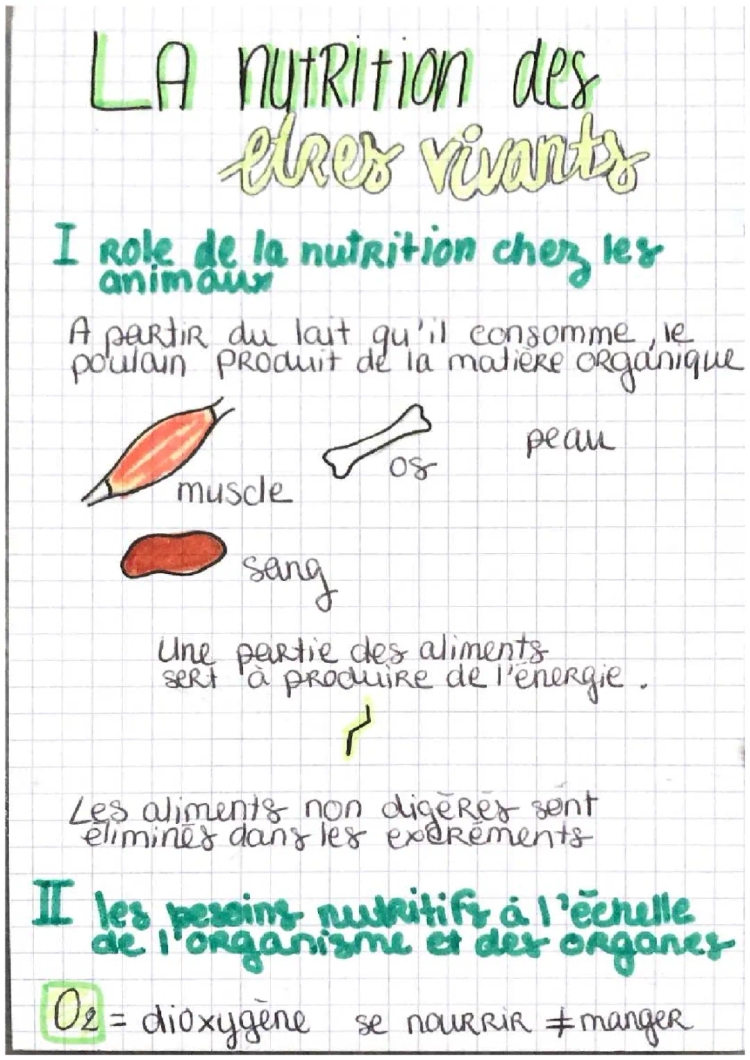 LA nutrition des
etres vivants
I Role de la nutrition chez les
animaux
A partir du lait qu'il consomme, le
poulain produit de la matière organique
muscle
os
peau
sang
Une partie des aliments
sert à produire de l'énergie.
Les aliments non digérés sont
éliminés dans les excréments
II les besoins nutritifs à l'échelle
de l'organisme et des organes
O₂ = dioxygène se nourrir ≠ manger